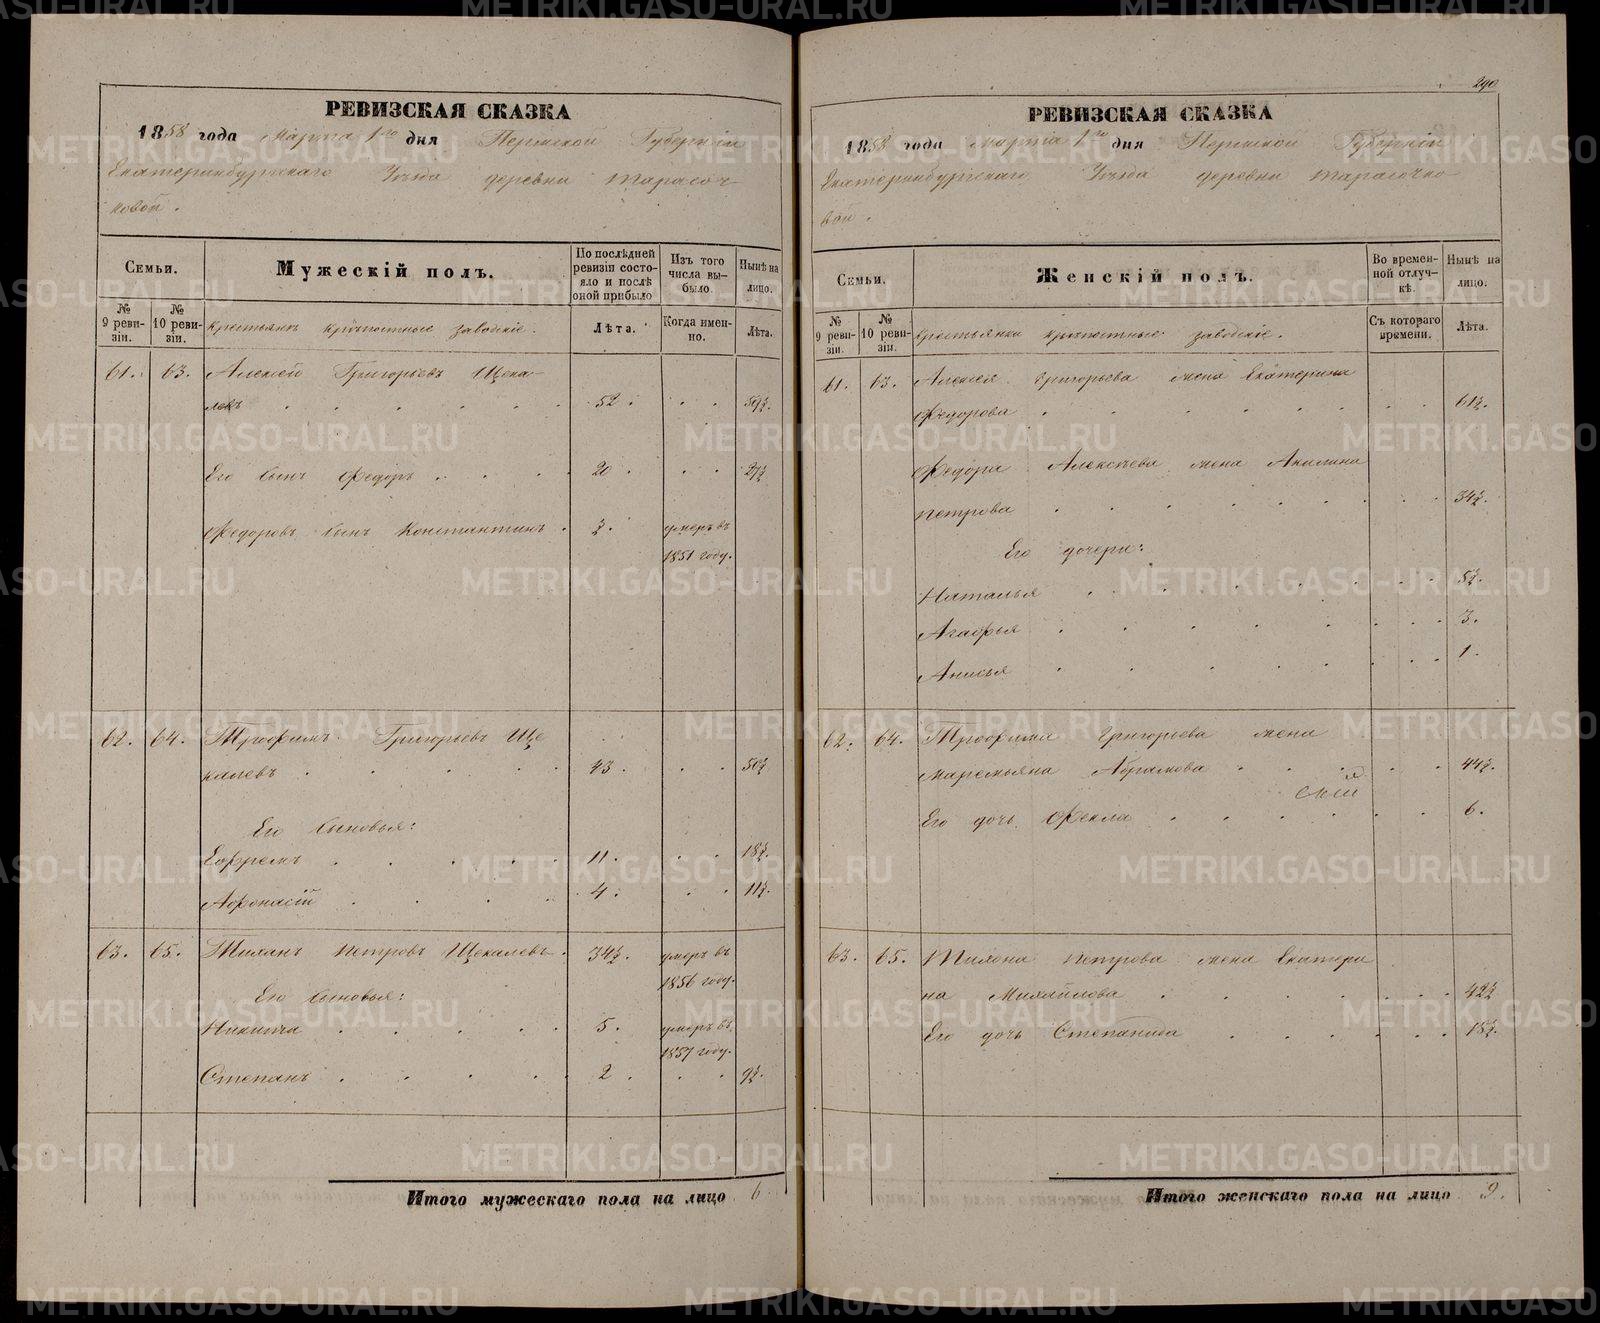 РЕВИЗСКАЯ СКАЗКА
1858 года Марта 1го дня Пермской Губернiи
Екатеринбургскаго Уѣзда деревни Тарасоч-
ковой.
Семьи.
№ 9 ревизiи.
№ 10 ревизiи.
Мужескiй полъ.
Крестьянъ крѣпостные заводскiе.
По послѣдней ревизiи состояло и послѣ оной прибыло
Лѣта.
Изъ того числа выбыло.
Когда именно.
Нынѣ на лицо.
Лѣта.
61. 63. Алексей Григорьевъ Щека-
левъ 52. 59½.
Его сынъ Федоръ 20. 27½
Федоровъ сынъ Константинъ. ½. умеръ въ
1851 году.
62. 64. Трофимъ Григорьевъ Ще
калевъ 43. 50½
Его сыновья:
Ефремъ 11. 18½.
Афонасiй 4. 11½.
63. 65. Тиханъ Петровъ Щекалевъ. 34½. умеръ въ
1856 году.
Его сыновья:
Никита 5. умеръ въ
1857 году.
Степанъ 2. 9½.
Итого мужескаго пола на лицо 6.
290
РЕВИЗСКАЯ СКАЗКА
1858 года Марта 1го дня Пермской Губернiи
Екатеринбургскаго Уѣзда деревни Тарасочко-
вой.
Семьи.
№ 9 ревизiи.
№ 10 ревизiи.
Женскiй полъ.
Крестьянки крѣпостные заводскiе.
Во временной отлучкѣ.
Съ котораго времени.
Нынѣ на лицо.
Лѣта.
61. 63. Алексея Григорьева жена Екатерина
Федорова 61½.
Федора Алексѣева жена Акилина
Петрова 34½.
Его дочери:
Наталья 5½.
Агафья 3.
Анисья 1.
62. 64. Трофима Григорьева жена
Маремьяна Абрамова 44½.
Его дочь Фекла 6.
63. 65. Тихона Петрова жена Екатери
на Михайлова 42½
Его дочь Степанида 15½.
Итого женскаго пола на лицо 9.
METRIKI.GASO-URAL.RU